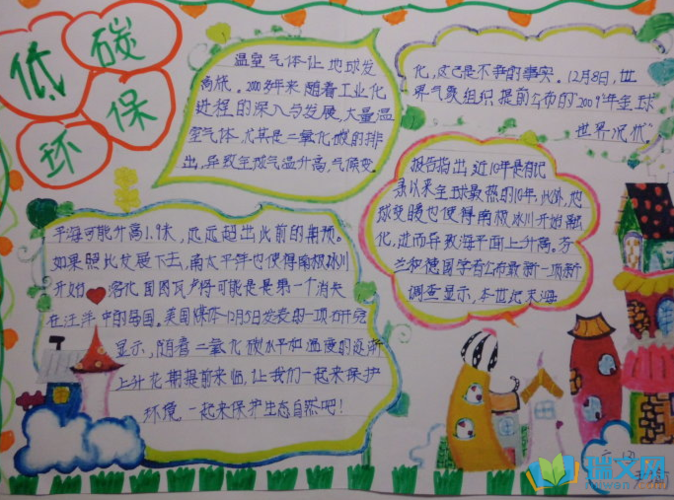 低碳
环保
温室气体让地球发
高烧。200多年来随着工业化
进程的深入与发展,大量温
室气体,尤其是二氧化碳的排
出,导致全球气温升高,气候变
化,这已是不争的事实。12月8日,世
界气象组织提前公布的"2009年全球
世界况状"
报告指出,近10年是有记
录以来全球最热的10年,此外,地
球变暖也使得南极冰川开始融
化,进而导致海平面上升高。芬
兰和德国学者公布最新一项新
调查显示,本世纪末海
平海可能升高1.9米,远远超出此前的期预。
如果照比发展下去,南太平洋也使得南极冰川
开始 溶化国图瓦卢将可能是是第一个消失
在汪洋中的岛国。美国媒体12月5日发表的一项研究
显示,随着二氧化碳水平和温度的逐渐
上升花期提前来临,让我们一起来保护
环境,一起来保护生态自然吧!
瑞文网